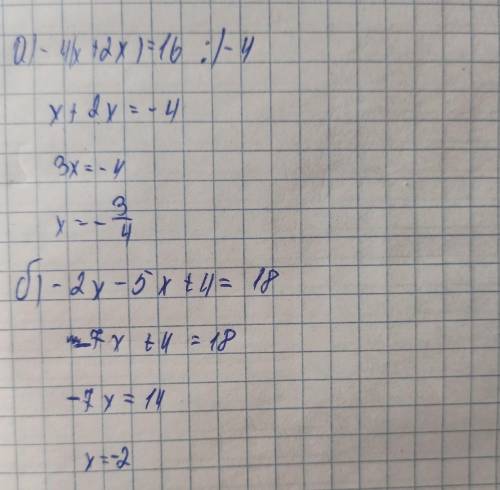 а) -4(x+2x)=16 :)-4
x+2x=-4
3x=-4
x=-3/4
б) -2x-5x+4=18
-7x+4=18
-7x=14
x=-2